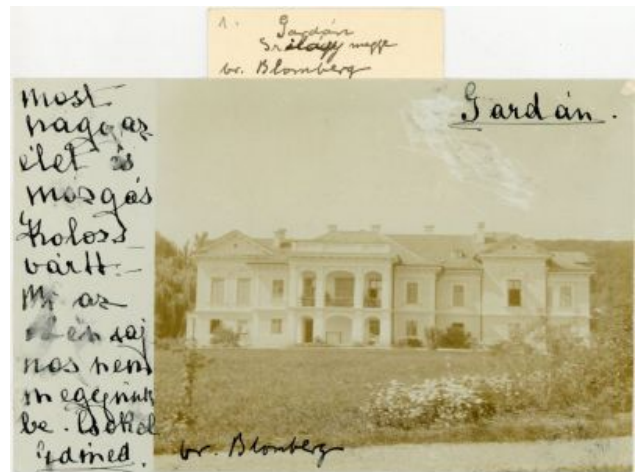 1. Gardán
Szilágy megye
br. Blomberg
Gardán.
most
nagy az
élet és
mozgás
Kolozs
vártt.
Mi az
idén saj
nos nem
megyünk
be. Csókol
br. Blomberg